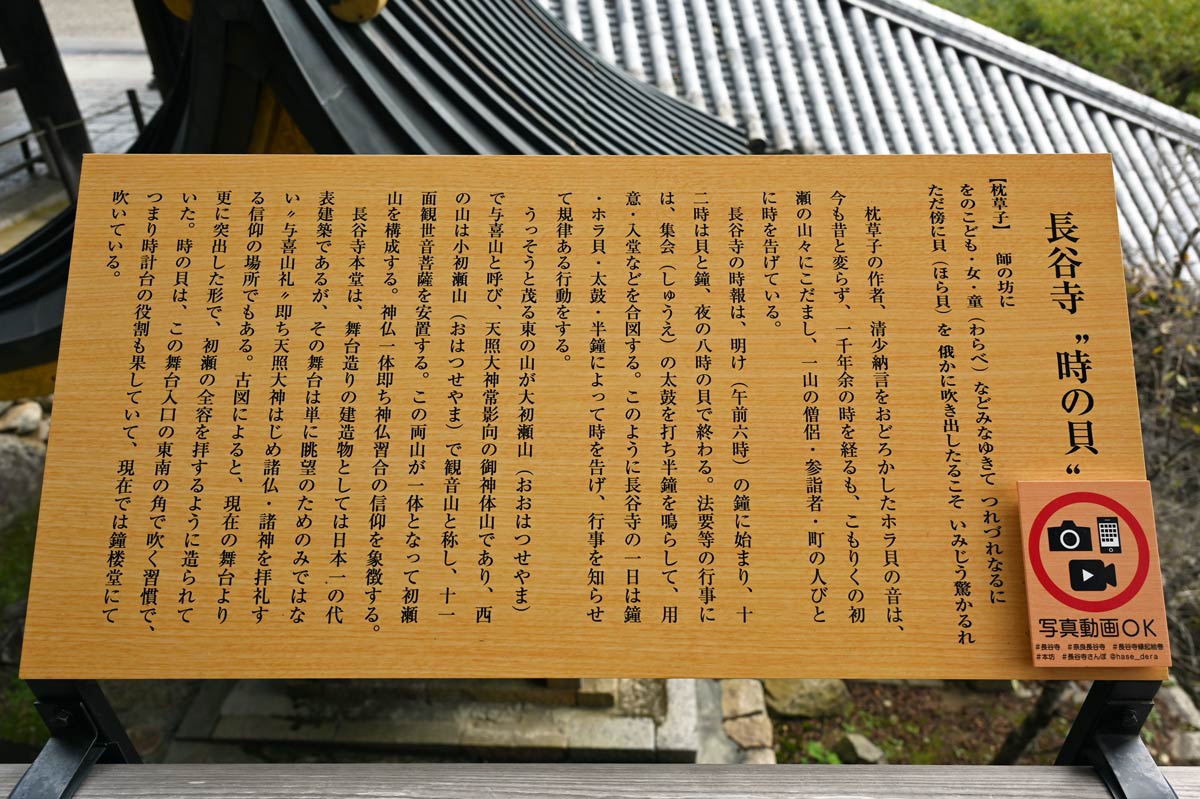 長谷寺〝時の貝〟
【枕草子】 師の坊に
をのこども・女・童（わらべ）などみなゆきて つれづれなるに
ただ傍に貝（ほら貝）を 俄かに吹き出したるこそ いみじう驚かるれ
枕草子の作者、清少納言をおどろかしたホラ貝の音は、
今も昔と変らず、一千年余の時を経るも、こもりくの初
瀬の山々にこだまし、一山の僧侶・参詣者・町の人びと
に時を告げている。
長谷寺の時報は、明け（午前六時）の鐘に始まり、十
二時は貝と鐘、夜の八時の貝で終わる。法要等の行事に
は、集会（しゅうえ）の太鼓を打ち半鐘を鳴らして、用
意・入堂などを合図する。このように長谷寺の一日は鐘
・ホラ貝・太鼓・半鐘によって時を告げ、行事を知らせ
て規律ある行動をする。
うっそうと茂る東の山が大初瀬山（おおはつせやま）
で与喜山と呼び、天照大神常影向の御神体山であり、西
の山は小初瀬山（おはつせやま）で観音山と称し、十一
面観世音菩薩を安置する。この両山が一体となって初瀬
山を構成する。神仏一体即ち神仏習合の信仰を象徴する。
長谷寺本堂は、舞台造りの建造物としては日本一の代
表建築であるが、その舞台は単に眺望のためのみではな
い〝与喜山礼〟即ち天照大神はじめ諸仏・諸神を拝礼す
る信仰の場所でもある。古図によると、現在の舞台より
更に突出した形で、初瀬の全容を拝するように造られて
いた。時の貝は、この舞台入口の東南の角で吹く習慣で、
つまり時計台の役割も果していて、現在では鐘楼堂にて
吹いている。
写真動画OK
#長谷寺 #奈良長谷寺 #長谷寺縁起絵巻
#本坊 #長谷寺さんぽ @hase_dera